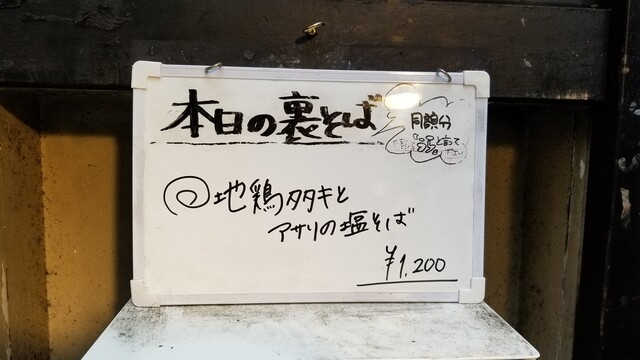 本日の裏そば
地鶏タタキと
アサリの塩そば
¥1,200